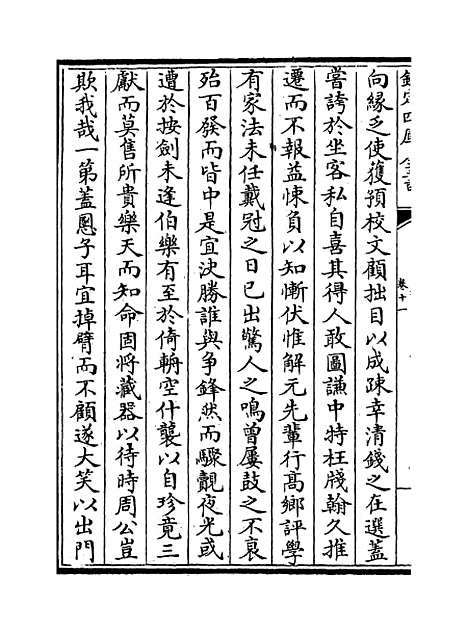 欽定四庫全書
卷十一
向緣乏使獲預校文顧拙目以成疎幸清錢之在選蓋
嘗誇於坐客私自喜其得人敢圖謙中特枉牋翰久推
遷而不報益悚負以知慚伏惟解元先輩行高鄉評學
有家法未任戴冠之日已出驚人之鳴曾屢鼓之不衰
殆百發而皆中是宜決勝誰與争鋒然而驟覿夜光或
遭於按劍未逢伯樂有至於倚輈空什襲以自珍竟三
獻而莫售所貴樂天而知命固將藏器以待時周公豈
欺我哉一第蓋恩子耳宜掉臂而不顧遂大笑以出門